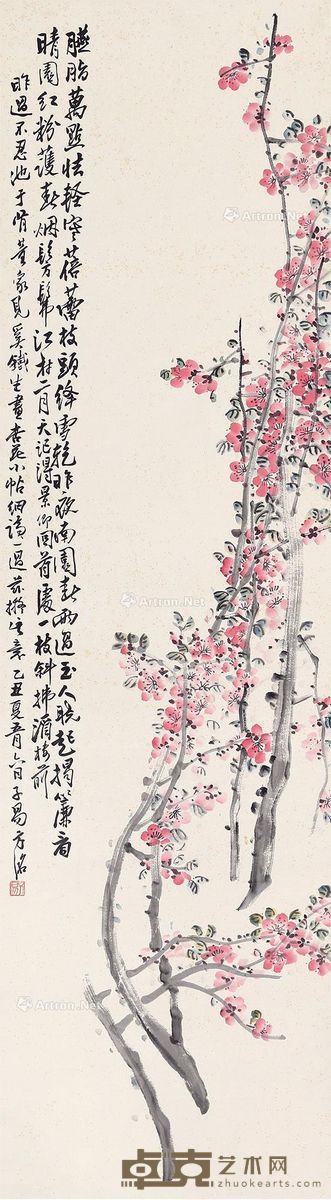 臙脂萬點怯輕寒蓓蕾枝頭絳雪乾昨夜南園春雨過玉人曉起揭簾看
晴園紅粉護春烟髣髴江村二月天記得景仰回首處一枝斜拂酒樓前
昨過不忍池于肯董家見奚鐵生畫杏花小帖細讀一過兹擬其意乙丑夏五月六日子易方洺
Artron.Net
Artron.Net
Artron.Net
Artron.Net
卓克艺术网
www.zhuokearts.com